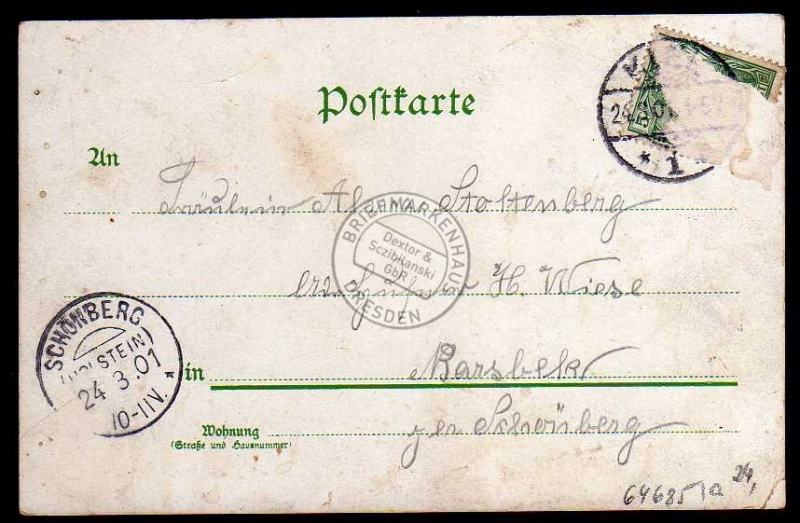 Postkarte
An
Fräulein Stoltenberg
H. Wiese
in Barsbek
Schönberg
Wohnung
(Straße und Hausnummer)
SCHÖNBERG
(HOLSTEIN)
24.3.01
10-11V.
*
* 1
BRIEFMARKENHAUS
Dextor &
Sczibilanski
GbR
DRESDEN
64685 a 24,